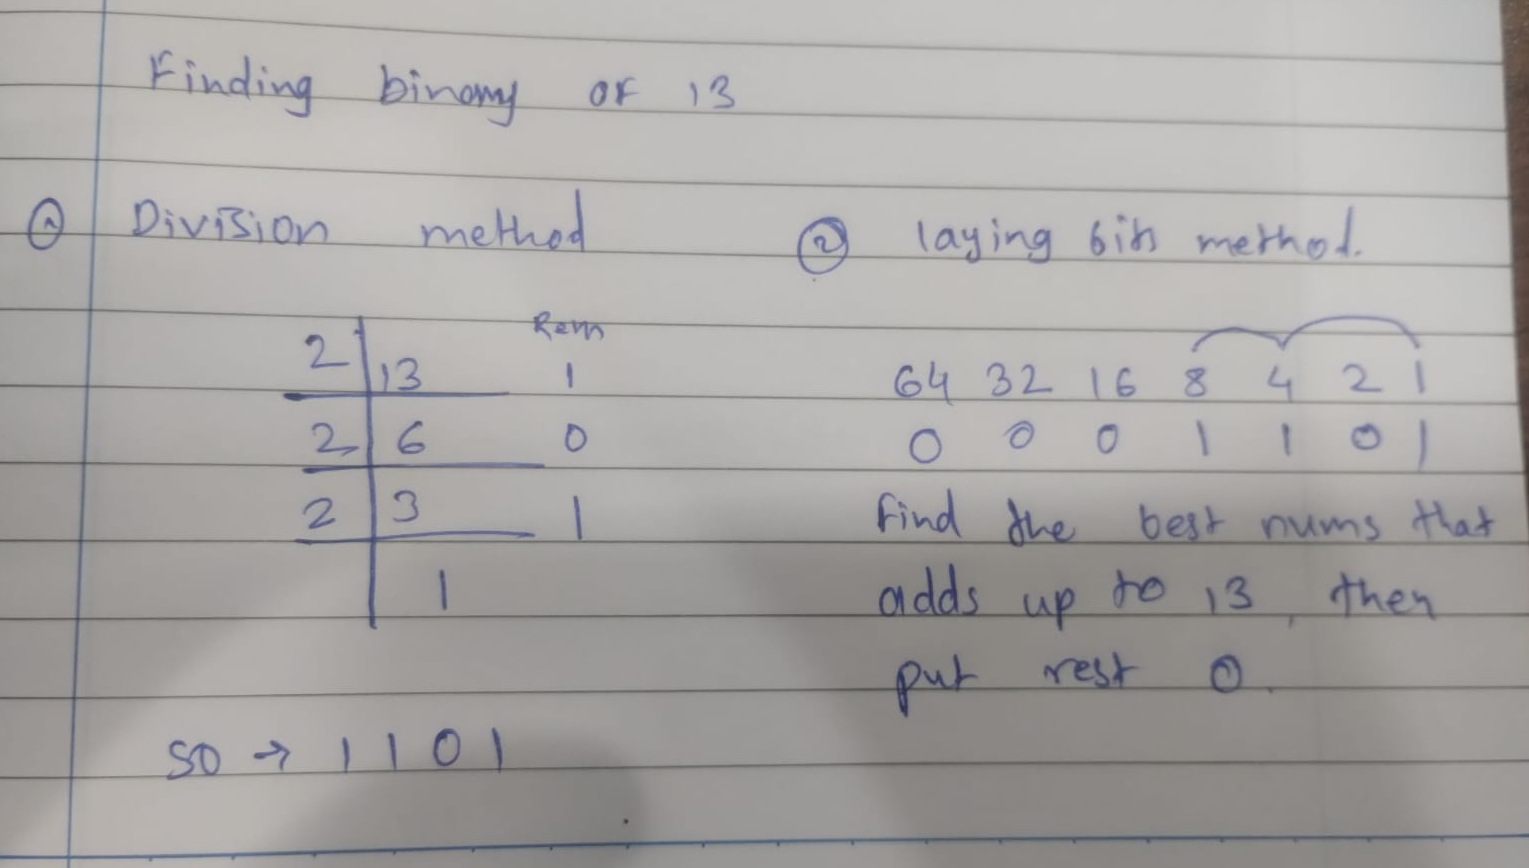 Finding binary of 13
① Division method
Rem
2 13 1
2 6 0
2 3 1
1
so → 1101
② laying bits method.
64 32 16 8 4 2 1
0 0 0 1 1 0 1
Find the best nums that
adds up to 13, then
put rest 0.